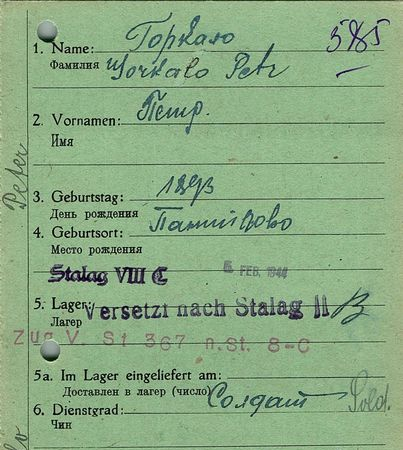 1. Name: Горкало 585
Фамилия Gorkalo Petr
2. Vornamen: Петр.
Имя
Peter
3. Geburtstag: 1893
День рождения
4. Geburtsort:
Место рождения
Stalag VIII C 5. FEB. 1944
5. Lager: Versetzt nach Stalag II B
Лагер
Zug V. St 367 n.St. 8-C
5a. Im Lager eingeliefert am:
Доставлен в лагер (число)
6. Dienstgrad: Солдат Sold.
Чин